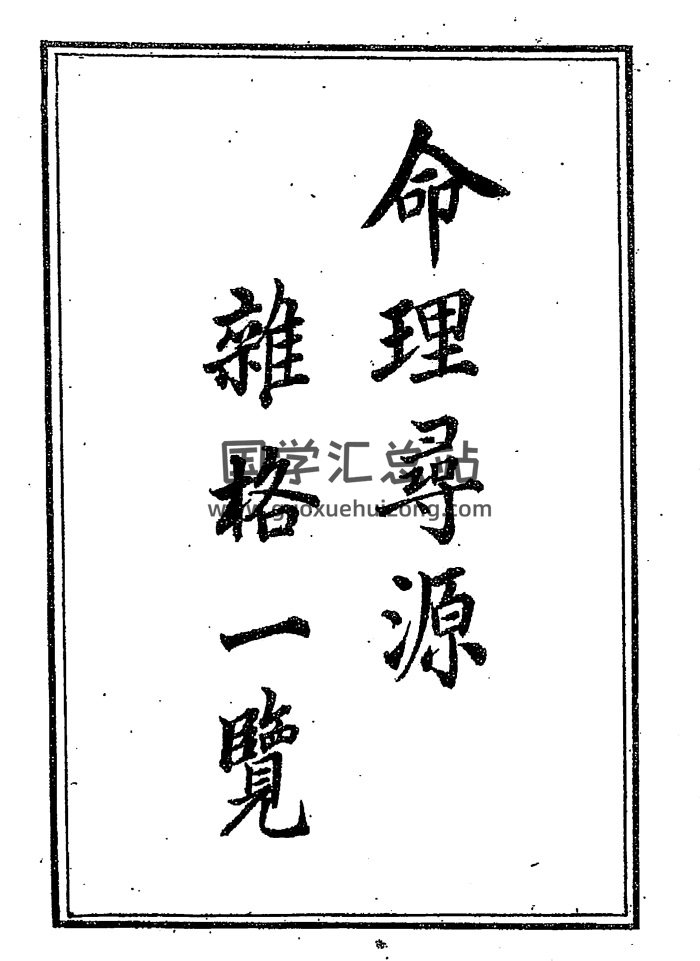 命理尋源
雜格一覽
国学汇总站
www.guoxuehuizong.com